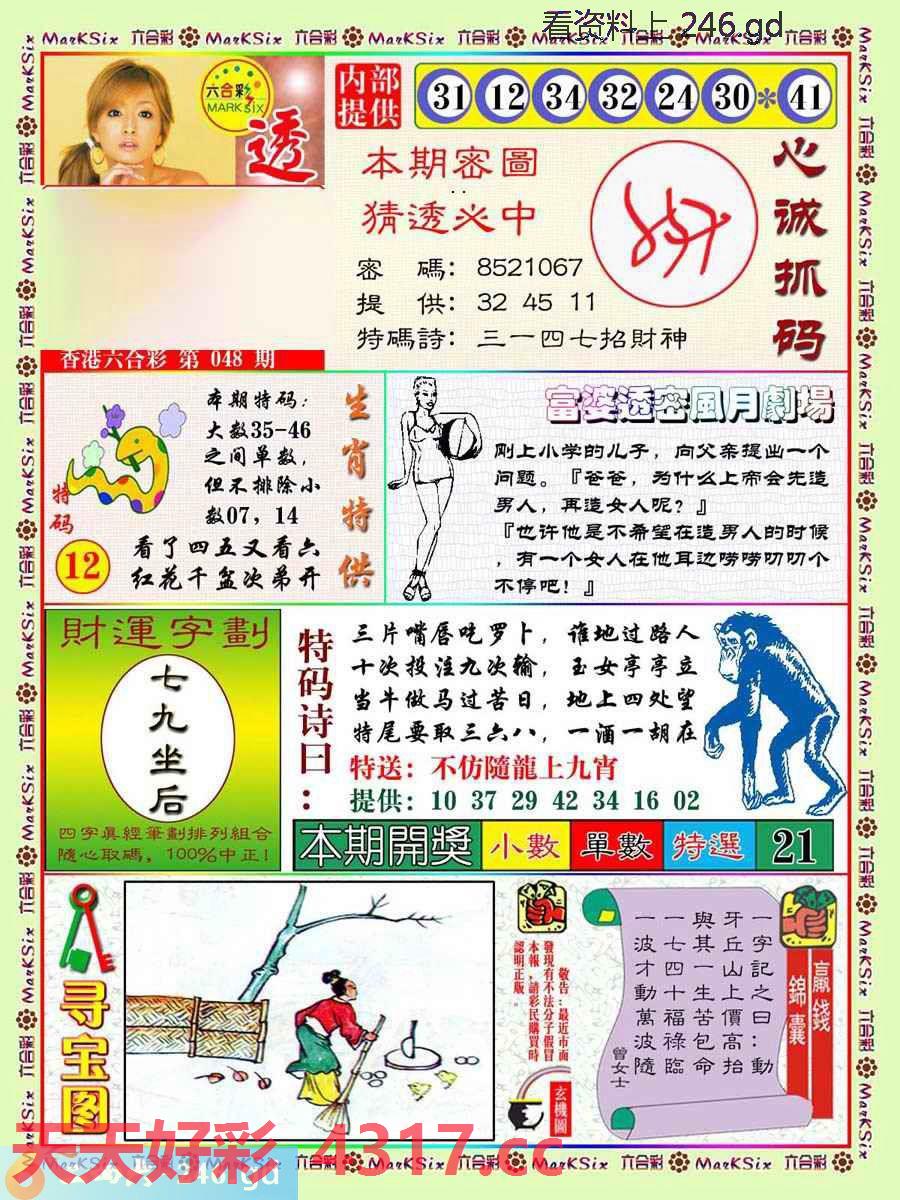 看资料上 246.gd
六合彩
MARK SIX
透
内部
提供
31 12 34 32 24 30 * 41
本期密圖
猜透必中
密 碼：8521067
提 供：32 45 11
特碼詩：三一四七招財神
心诚抓码
香港六合彩 第 048 期
本期特码：
大数35-46
之间单数，
但不排除小
数07，14
特码
12
看了四五又看六
红花千盆次弟开
生肖特供
富婆透密風月劇場
刚上小学的儿子，向父亲提出一个
问题。『爸爸，为什么上帝会先造
男人，再造女人呢？』
『也许他是不希望在造男人的时候
，有一个女人在他耳边唠唠叨叨个
不停吧！』
財運字劃
七九坐后
四字真經筆劃排列組合
隨心取碼，100%中正！
特码诗曰：
三片嘴唇吃罗卜，谁地过路人
十次投注九次输，玉女亭亭立
当牛做马过苦日，地上四处望
特尾要取三六八，一酒一胡在
特送：不仿隨龍上九宵
提供：10 37 29 42 34 16 02
本期開獎 小數 單數 特選 21
寻宝图
敬告：最近市面
發現有不法分子假冒
本報，請彩民購買時
認明正版。
玄機圖
贏錢
錦囊
一字記之曰：動
牙丘山上價高抬
與其一生苦包命
一七四十福祿臨
一波才動萬波隨
曾女士
天天好彩 4317.cc
246.gd
MarKSix 六合彩